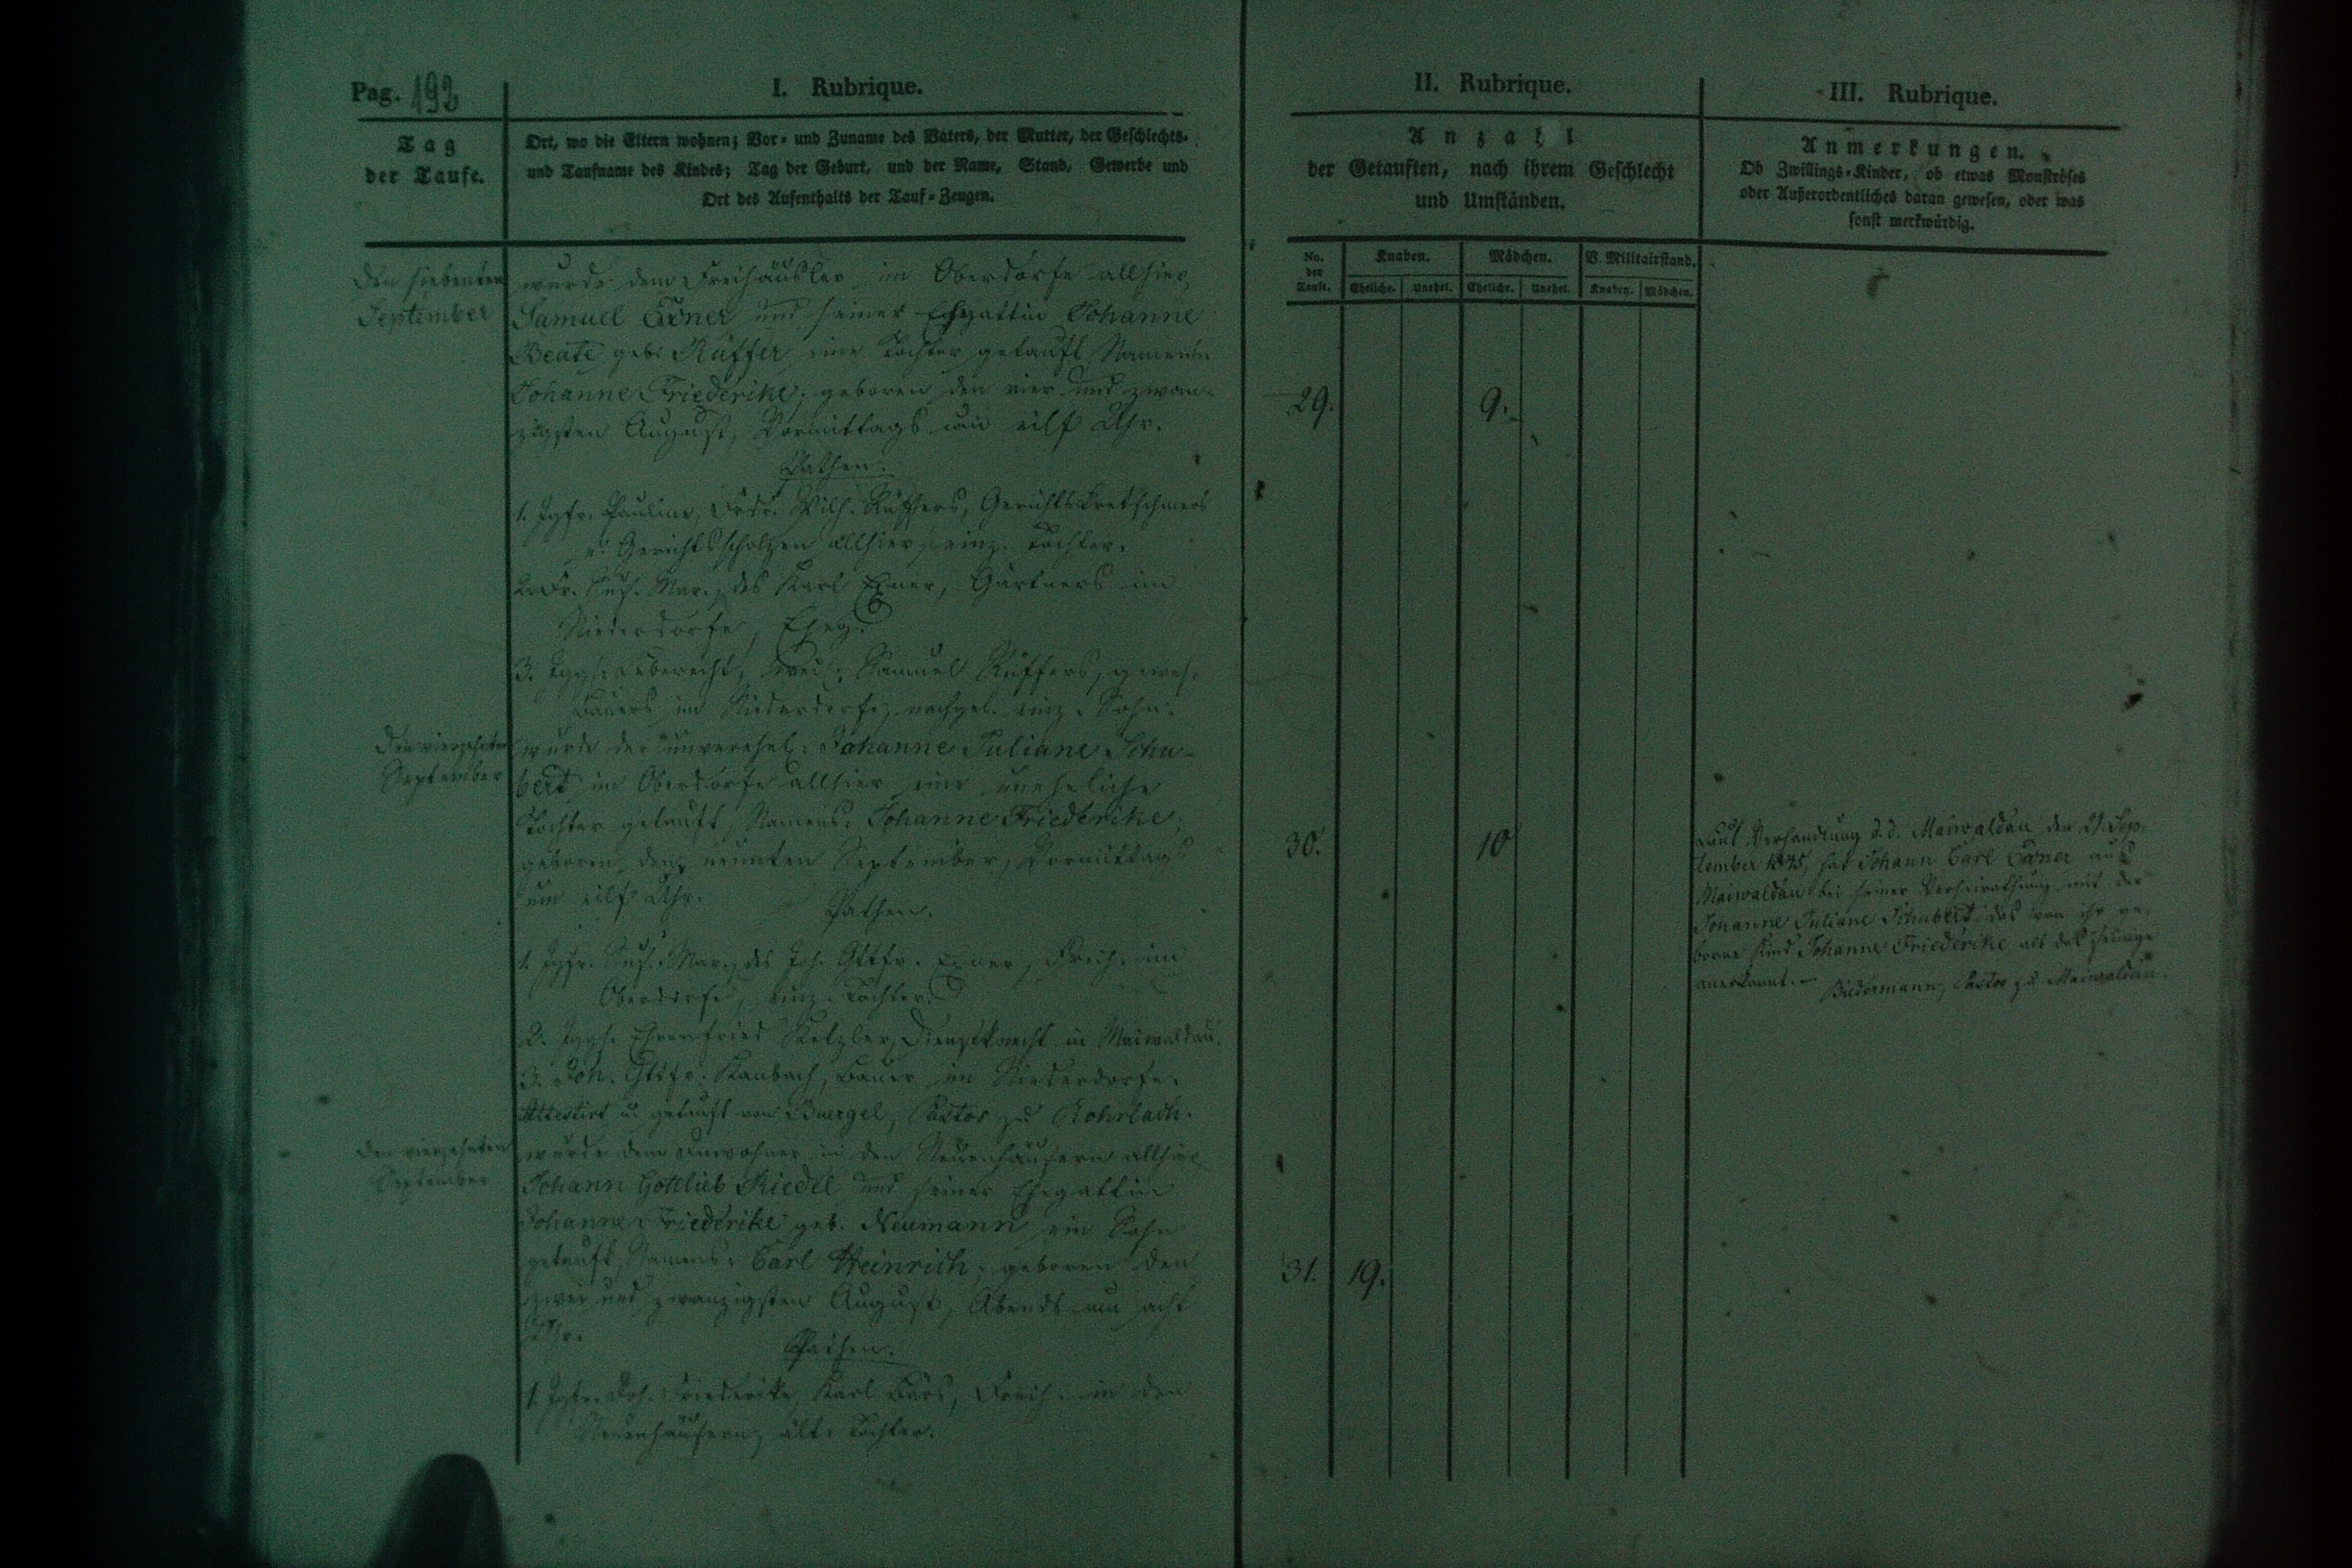 Pag. 192
I. Rubrique.
Tag
der Taufe.
Ort, wo die Eltern wohnen; Vor- und Zuname des Vaters, der Mutter, der Geschlechts-
und Taufname des Kindes; Tag der Geburt, und der Name, Stand, Gewerbe und
Ort des Aufenthalts der Tauf-Zeugen.
Den siebenten
September
wurde dem Freihäusler im Oberdorfe allhier,
Samuel Exner und seiner Ehegattin Johanne
Beate geb. Rüffer, eine Tochter getauft, Namens:
Johanne Friederike; geboren den vier und zwan-
zigsten August, Vormittags um eilf Uhr.
Pathen.
1. Jgfr. Pauline, Frdr. Wilh. Rüffers, Gerichtskretschmers
u. Gerichtsscholzen allhier, einz. Tochter.
2. Fr. Sus. Mar., des Karl Exner, Gärtners im
Niederdorfe, Eheg.
3. Jggs. Leberecht, weil. Samuel Rüffers, gewes.
Bauers im Niederdorfe, nachgel. einz. Sohn.
Den vierzehnten
September
wurde der unverehel. Johanne Juliane Schu-
bert im Oberdorfe allhier eine uneheliche
Tochter getauft, Namens: Johanne Friederike;
geboren den neunten September, Vormittags
um eilf Uhr.
Pathen.
1. Jgfr. Sus. Mar., des Joh. Gttfr. Exner, Freih. im
Oberdorfe, einz. Tochter.
2. Jggs. Ehrenfried Ketzler, Dienstknecht in Maiwaldau.
3. Joh. Gttfr. Kambach, Bauer im Niederdorfe.
Attestirt u. getauft von Buergel, Pastor zu Rohrlach.
Den vierzehnten
September
wurde dem Inwohner in den Neuenhäusern allhier
Johann Gottlieb Riedel und seiner Ehegattin
Johanne Friederike geb. Neumann ein Sohn
getauft, Namens: Carl Heinrich; geboren den
zwei und zwanzigsten August, Abends um acht
Uhr.
Pathen.
1. Jgfr. Joh. Friederike, Karl Bärs, Freih. in den
Neuenhäusern, ält. Tochter.
II. Rubrique.
Anzahl
der Getauften, nach ihrem Geschlecht
und Umständen.
No.
der
Taufe.
Knaben. Mädchen. V. Militairstand.
Eheliche. Unehel. Eheliche. Unehel. Knaben. Mädchen.
29. 9.
30. 10
31. 19.
III. Rubrique.
Anmerkungen.
Ob Zwillings-Kinder, ob etwas Monströses
oder Außerordentliches daran gewesen, oder was
sonst merkwürdig.
Laut Verhandlung d. d. Maiwaldau den 21. Sep-
tember 1845, hat Johann Carl Exner aus
Maiwaldau bei seiner Verheirathung mit der
Johanne Juliane Schubert, das von ihr ge-
borne Kind Johanne Friederike, als das seinige
anerkannt. – Biedermann, Pastor zu Maiwaldau.